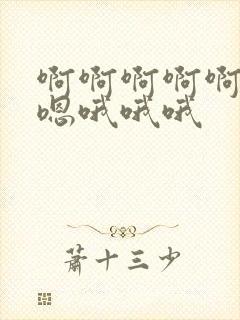 啊啊啊啊啊
嗯哦哦哦
萧十三少